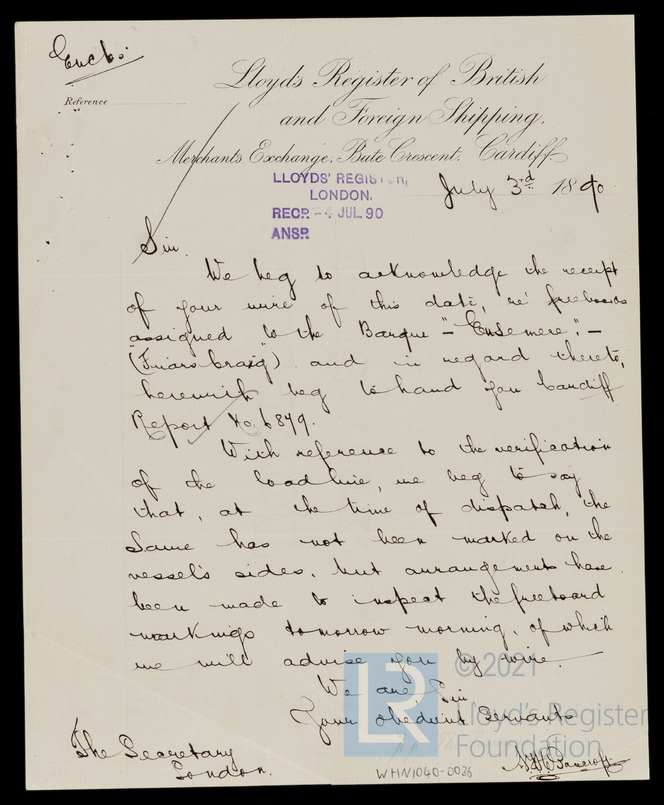 Encl:
Reference
Lloyd's Register of British
and Foreign Shipping.
Merchants Exchange, Bute Crescent, Cardiff
LLOYDS' REGISTER,
LONDON.
RECD. - 4 JUL 90
ANSD.
July 3rd 1890
Sir.
We beg to acknowledge the receipt
of your wire of this date, re' freeboards
assigned to the Barque "- Ensemere". -
(Friars Craig) and in regard thereto,
herewith beg to hand you Cardiff
Report No. 6879.
With reference to the verification
of the loadline, we beg to say
that, at the time of dispatch, the
same has not been marked on the
vessel's sides, but arrangements have
been made to inspect the freeboard
markings tomorrow morning, of which
we will advise you by wire.
We are Sir
Your obedient Servants
The Secretary
London.
WHN1040-0036
LR
© 2021
Lloyd's Register
Foundation